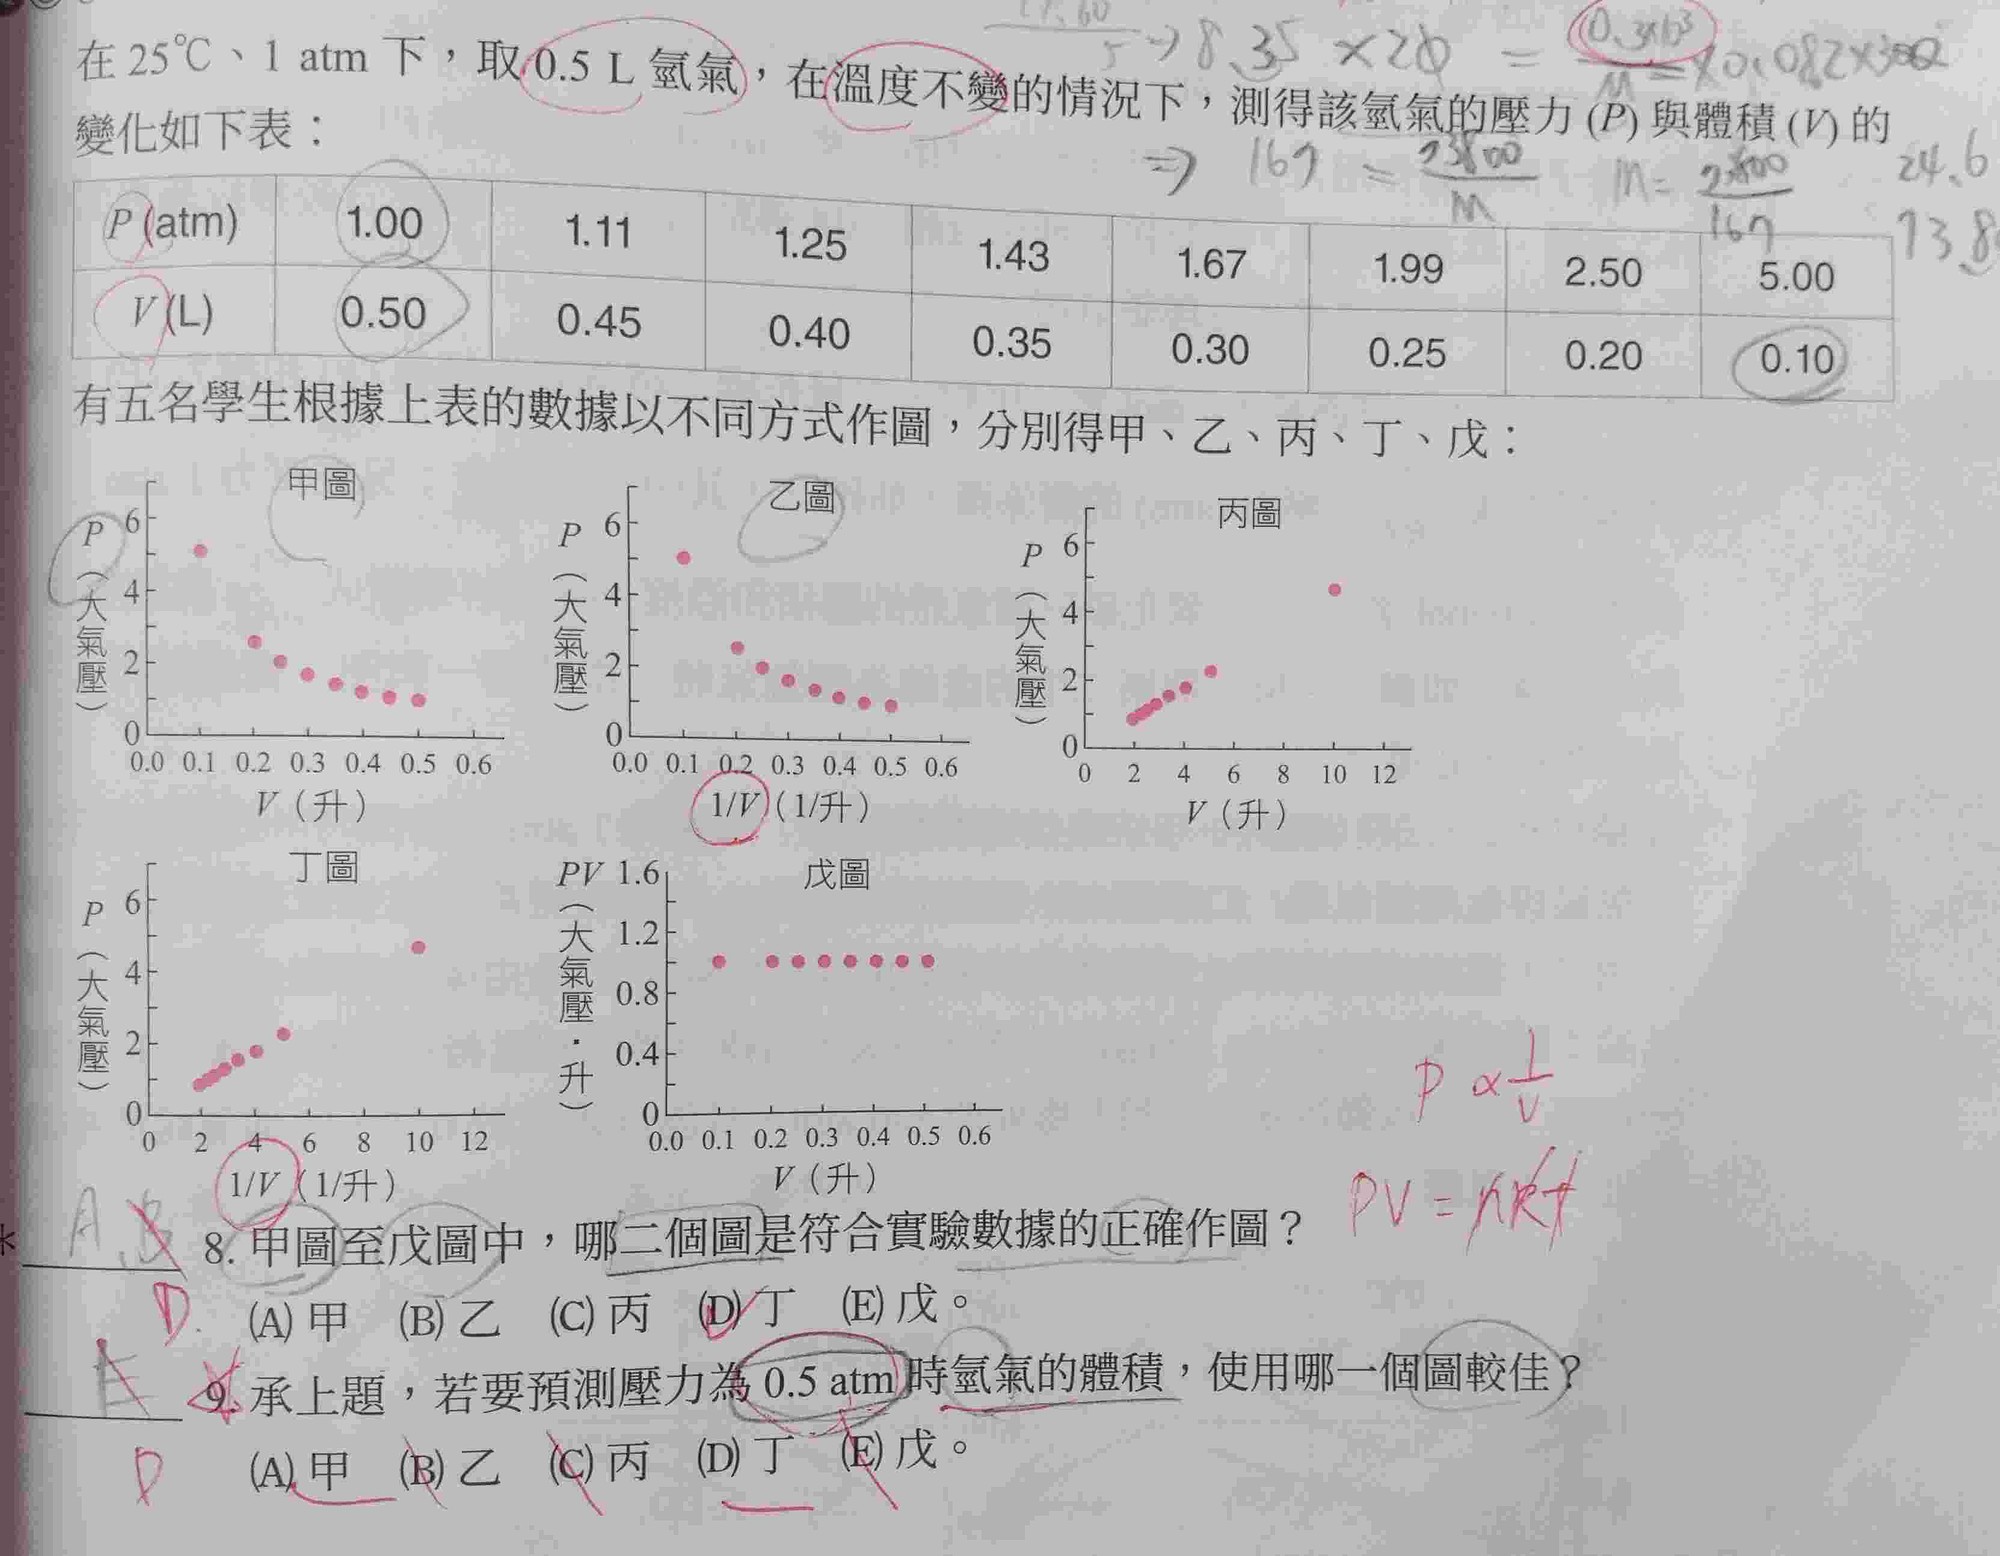 → 8.35 × 20 = 0.3×10³/M × 0.082×300
在 25℃、1 atm 下，取 0.5 L 氫氣，在溫度不變的情況下，測得該氫氣的壓力 (P) 與體積 (V) 的
變化如下表：
⇒ 167 = 23800/M  M = 23800/167
24.6
P (atm) 1.00 1.11 1.25 1.43 1.67 1.99 2.50 5.00
V (L) 0.50 0.45 0.40 0.35 0.30 0.25 0.20 0.10
有五名學生根據上表的數據以不同方式作圖，分別得甲、乙、丙、丁、戊：
甲圖
P（大氣壓）
6
4
2
0
0.0 0.1 0.2 0.3 0.4 0.5 0.6
V（升）
乙圖
P（大氣壓）
6
4
2
0
0.0 0.1 0.2 0.3 0.4 0.5 0.6
1/V（1/升）
丙圖
P（大氣壓）
6
4
2
0
0 2 4 6 8 10 12
V（升）
丁圖
P（大氣壓）
6
4
2
0
0 2 4 6 8 10 12
1/V（1/升）
戊圖
PV（大氣壓・升）
1.6
1.2
0.8
0.4
0
0.0 0.1 0.2 0.3 0.4 0.5 0.6
V（升）
P ∝ 1/V
PV = nRT
A B
8. 甲圖至戊圖中，哪二個圖是符合實驗數據的正確作圖？
D
(A) 甲 (B) 乙 (C) 丙 (D) 丁 (E) 戊。
E
9. 承上題，若要預測壓力為 0.5 atm 時氫氣的體積，使用哪一個圖較佳？
D
(A) 甲 (B) 乙 (C) 丙 (D) 丁 (E) 戊。